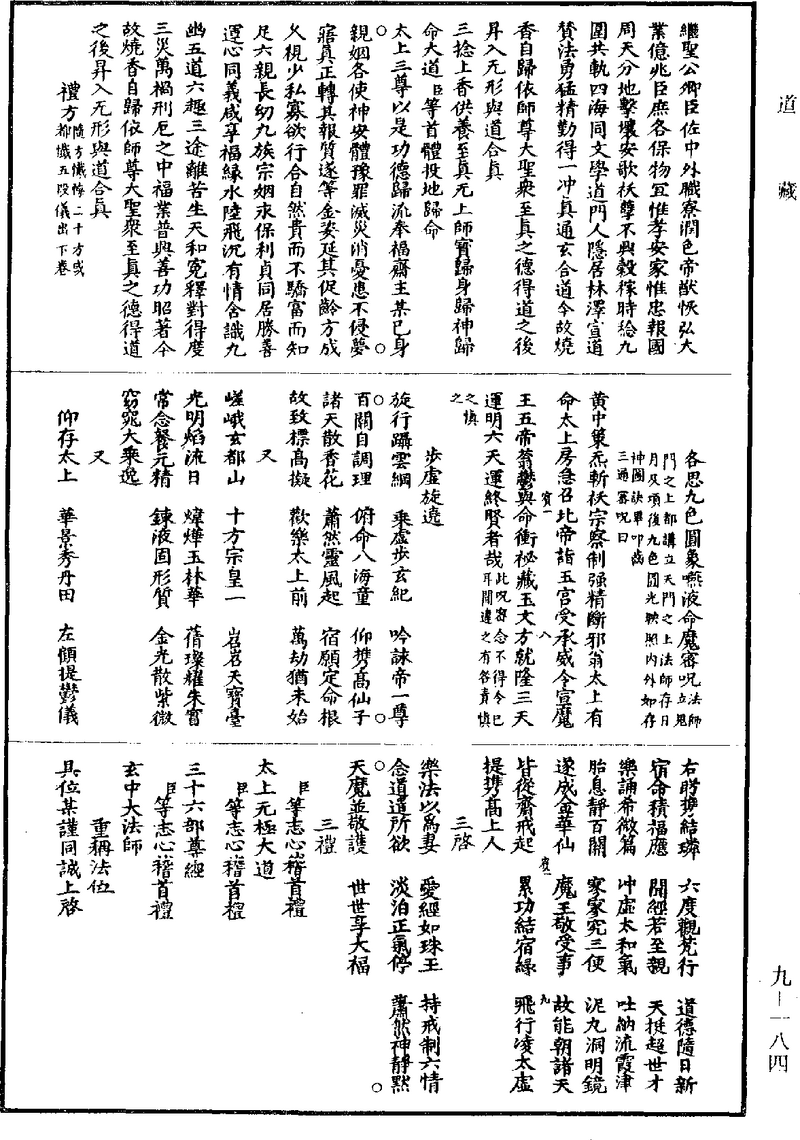 道藏
繼聖公卿臣佐中外職寮潤色帝猷恢弘大
業億兆臣庶各保物宜惟孝安家惟忠報國
周天分地擊壤安歌祅孽不興穀稼時稔九
圍共軌四海同文學道門人隱居林澤宣道
贊法勇猛精勤得一冲真通玄合道今故燒
香自歸依師尊大聖衆至真之德得道之後
昇入无形與道合真
三捻上香供養至真无上師寳歸身歸神歸
命大道臣等首體投地歸命
太上三尊以是功德歸流奉福齋主某已身
親姻各使神安體豫罪滅災消憂患不侵夢
寤真正轉其報質遂等金姿延其促齡方成
久視少私寡欲行合自然貴而不驕富而知
足六親長幼九族宗姻永保利貞同居勝善
運心同義咸享福緣水陸飛沉有情含識九
幽五道六趣三途離苦生天和寃釋對得度
三災萬禍刑厄之中福業普興善功昭著今
故燒香自歸依師尊大聖衆至真之德得道
之後昇入无形與道合真
禮方隨方懺悔二十方或都懺五段儀出下卷
各思九色圓象嚥液命魔密呪法師立鬼
門之上都講立天門之上法師存日
月及項後九色圓光映照內外如存
神圖訣畢叩齒
三通密呪曰
黃中策炁斬祅宗察制强精斷邪翁太上有
命太上房急召北帝詣玉宫受承威令宣魔
王五帝蓊鬱與命衝祕藏玉文方就隆三天
運明六天運終賢者哉此呪密念不得令己耳聞違之有咎責愼
之愼之
步虛旋遶
旋行躡雲綱　乘虛步玄紀　吟詠帝一尊
百關自調理　俯命八海童　仰携髙仙子
諸天散香花　蕭然靈風起　宿願定命根
故致標髙擬　歡樂太上前　萬劫猶未始
又
嵯峨玄都山　十方宗皇一　岧岧天寳臺
光明焰流日　煒燁玉林華　蒨璨耀朱實
常念餐元精　鍊液固形質　金光散紫微
窈窕大乘逸
又
仰存太上　華景秀丹田　左顧提鬱儀
右盻携結璘　六度觀梵行　道德隨日新
宿命積福應　聞經若至親　天挺超世才
樂誦希微篇　冲虛太和氣　吐納流霞津
胎息靜百關　寥寥究三便　泥丸洞明鏡
遂成金華仙　魔王敬受事　故能朝諸天
皆從齋戒起　累功結宿緣　飛行凌太虛
提携髙上人
三啓
樂法以爲妻　愛經如珠玉　持戒制六情
念道遣所欲　淡泊正氣停　蕭然神靜默
天魔並敬護　世世享大福
三禮
臣等志心稽首禮
太上无極大道
臣等志心稽首禮
三十六部尊經
臣等志心稽首禮
玄中大法師
重稱法位
具位某謹同誠上啓
九—一八四